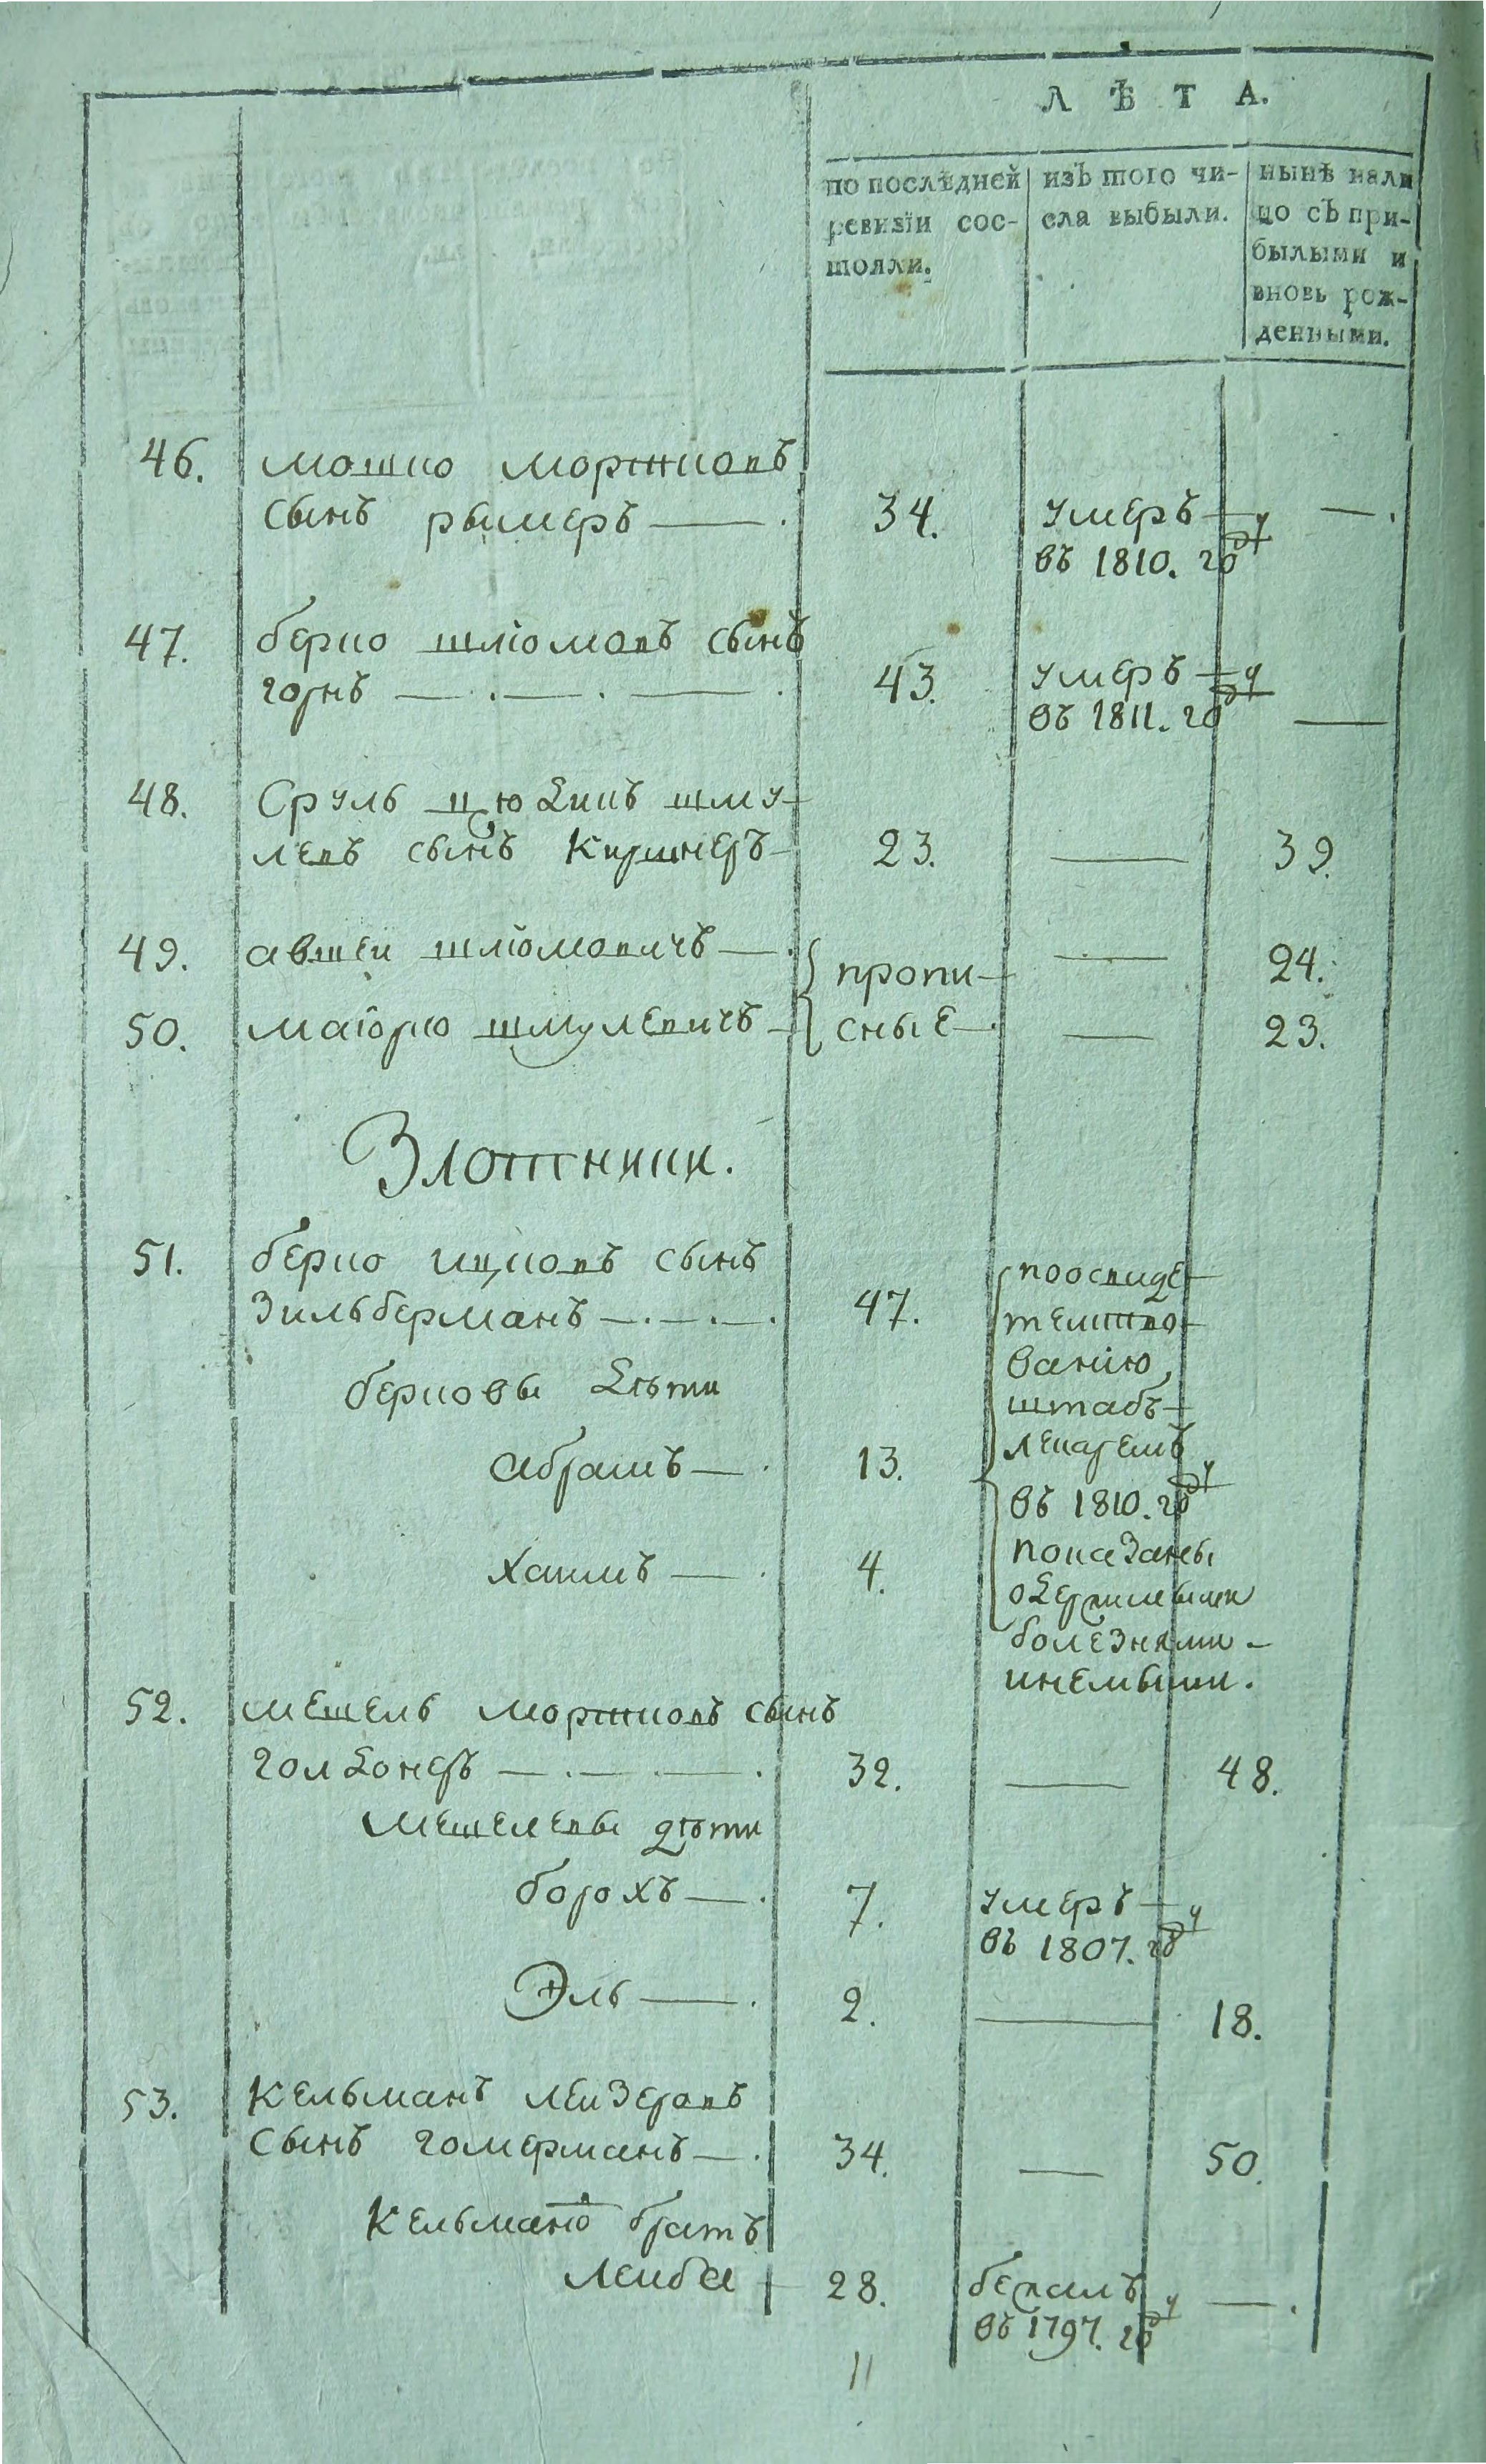 ЛѢТА.
по послѣдней
ревизїи сос-
тояли.
изъ того чи-
сла выбыли.
нынѣ нали
цо съ при-
былыми и
вновь рож-
денными.
46. мошко мортковъ
сынъ рымеръ — 34. умеръ — —
въ 1810. году
47. берко шліомовъ сынъ
горнъ — 43. умеръ —
въ 1811. году —
48. Сруль шму-
левъ сынъ Киршнеръ 23. — 39.
49. авшеи шліомовичъ — пропи- — 24.
50. маіорко шмулевичъ — сные — — 23.
Злотники.
51. берко ицковъ сынъ
Зильберманъ — 47.
берковы дѣти
абрамъ — 13.
хаимъ — 4.
поосвиде-
телство-
ванію,
штабъ-
лекаремъ
въ 1810. году
показаны
одержимыми
болезнями —
инемыми.
52. мешель мортковъ сынъ
голдонеръ — 32. — 48.
мешелевы дѣти
борохъ — 7. умеръ —
въ 1807. году
Эль — 2. — 18.
53. Кельманъ леизеровъ
сынъ гомерманъ — 34. — 50.
Кельмана братъ
леиба 28. бежалъ —
въ 1797. году
11